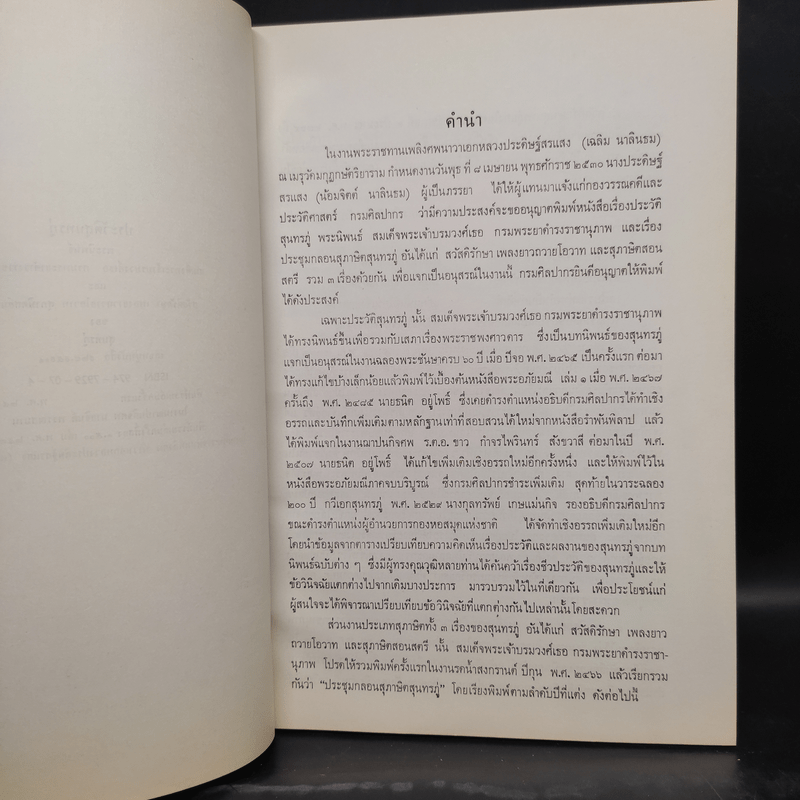 คำนำ
ในงานพระราชทานเพลิงศพนาวาเอกหลวงประดิษฐ์สรแสง (เฉลิม นาลินธม)
ณ เมรุวัดมกุฏกษัตริยาราม กำหนดงานวันพุธ ที่ ๘ เมษายน พุทธศักราช ๒๕๓๐ นางประดิษฐ์
สรแสง (น้อมจิตต์ นาลินธม) ผู้เป็นภรรยา ได้ให้ผู้แทนมาแจ้งแก่กองวรรณคดีและ
ประวัติศาสตร์ กรมศิลปากร ว่ามีความประสงค์จะขออนุญาตพิมพ์หนังสือเรื่องประวัติ
สุนทรภู่ พระนิพนธ์ สมเด็จพระเจ้าบรมวงศ์เธอ กรมพระยาดำรงราชานุภาพ และเรื่อง
ประชุมกลอนสุภาษิตสุนทรภู่ อันได้แก่ สวัสดิรักษา เพลงยาวถวายโอวาท และสุภาษิตสอน
สตรี รวม ๓ เรื่องด้วยกัน เพื่อแจกเป็นอนุสรณ์ในงานนี้ กรมศิลปากรยินดีอนุญาตให้พิมพ์
ได้ดังประสงค์
เฉพาะประวัติสุนทรภู่ นั้น สมเด็จพระเจ้าบรมวงศ์เธอ กรมพระยาดำรงราชานุภาพ
ได้ทรงนิพนธ์ขึ้นเพื่อรวมกับเสภาเรื่องพระราชพงศาวดาร ซึ่งเป็นบทนิพนธ์ของสุนทรภู่
แจกเป็นอนุสรณ์ในงานฉลองพระชันษาครบ ๖๐ ปี เมื่อ ปีจอ พ.ศ. ๒๔๖๕ เป็นครั้งแรก ต่อมา
ได้ทรงแก้ไขบ้างเล็กน้อยแล้วพิมพ์ไว้เบื้องต้นหนังสือพระอภัยมณี เล่ม ๑ เมื่อ พ.ศ. ๒๔๖๗
ครั้นถึง พ.ศ. ๒๔๘๕ นายธนิต อยู่โพธิ์ ซึ่งเคยดำรงตำแหน่งอธิบดีกรมศิลปากรได้ทำเชิง
อรรถและบันทึกเพิ่มเติมตามหลักฐานเท่าที่สอบสวนได้ใหม่จากหนังสือรำพันพิลาป แล้ว
ได้พิมพ์แจกในงานฌาปนกิจศพ ร.ต.อ. ขาว กำจรไพรินทร์ สังขวาสี ต่อมาในปี พ.ศ.
๒๕๐๗ นายธนิต อยู่โพธิ์ ได้แก้ไขเพิ่มเติมเชิงอรรถใหม่อีกครั้งหนึ่ง และให้พิมพ์ไว้ใน
หนังสือพระอภัยมณีภาคจบบริบูรณ์ ซึ่งกรมศิลปากรชำระเพิ่มเติม สุดท้ายในวาระฉลอง
๒๐๐ ปี กวีเอกสุนทรภู่ พ.ศ. ๒๕๒๙ นางกุลทรัพย์ เกษแม่นกิจ รองอธิบดีกรมศิลปากร
ขณะดำรงตำแหน่งผู้อำนวยการกองหอสมุดแห่งชาติ ได้จัดทำเชิงอรรถเพิ่มเติมใหม่อีก
โดยนำข้อมูลจากตารางเปรียบเทียบความคิดเห็นเรื่องประวัติและผลงานของสุนทรภู่จากบท
นิพนธ์ฉบับต่าง ๆ ซึ่งมีผู้ทรงคุณวุฒิหลายท่านได้ค้นคว้าเรื่องชีวประวัติของสุนทรภู่และให้
ข้อวินิจฉัยแตกต่างไปจากเดิมบางประการ มารวบรวมไว้ในที่เดียวกัน เพื่อประโยชน์แก่
ผู้สนใจจะได้พิจารณาเปรียบเทียบข้อวินิจฉัยที่แตกต่างกันไปเหล่านั้นโดยสะดวก
ส่วนงานประเภทสุภาษิตทั้ง ๓ เรื่องของสุนทรภู่ อันได้แก่ สวัสดิรักษา เพลงยาว
ถวายโอวาท และสุภาษิตสอนสตรี นั้น สมเด็จพระเจ้าบรมวงศ์เธอ กรมพระยาดำรงราชา-
นุภาพ โปรดให้รวมพิมพ์ครั้งแรกในงานรดน้ำสงกรานต์ ปีกุน พ.ศ. ๒๔๖๖ แล้วเรียกรวม
กันว่า “ประชุมกลอนสุภาษิตสุนทรภู่” โดยเรียงพิมพ์ตามลำดับปีที่แต่ง ดังต่อไปนี้